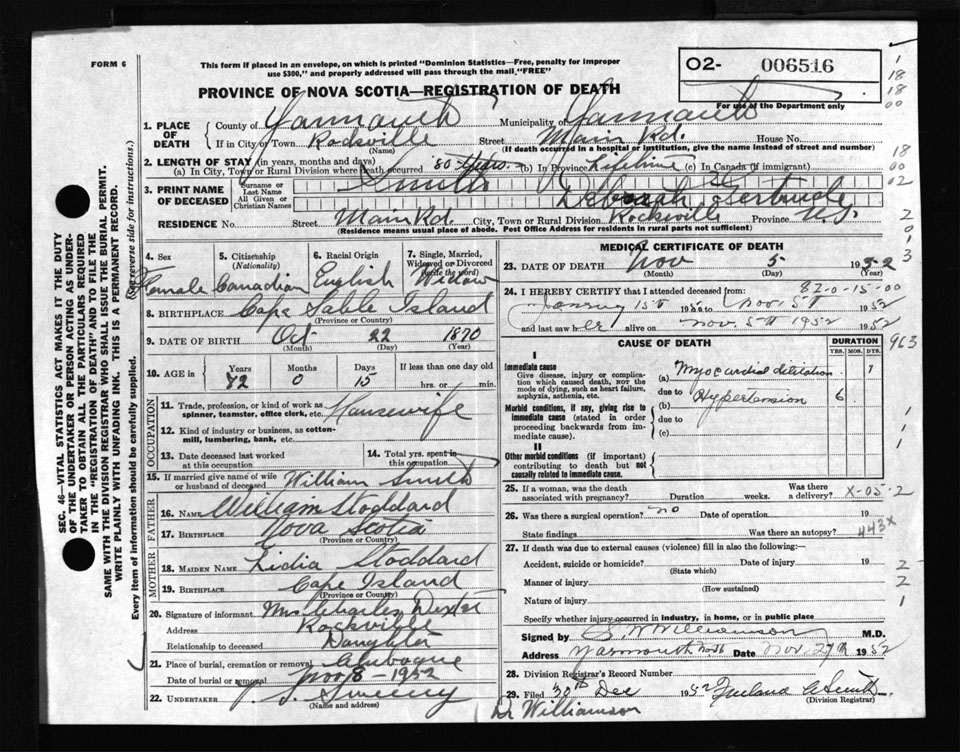 FORM 6
This form if placed in an envelope, on which is printed "Dominion Statistics—Free, penalty for improper
use $300," and properly addressed will pass through the mail "FREE"
O2- 006516
For use of the Department only
PROVINCE OF NOVA SCOTIA—REGISTRATION OF DEATH
1. PLACE OF DEATH
County of Yarmouth Municipality of Yarmouth
If in City or Town Rockville Street Main Rd. House No.
(Name) (If death occurred in a hospital or institution, give the name instead of street and number)
2. LENGTH OF STAY (in years, months and days)
(a) In City, Town or Rural Division where death occurred 80 years. (b) In Province Lifetime (c) In Canada (if immigrant)
3. PRINT NAME OF DECEASED
Surname or Last Name Smith
All Given or Christian Names Deborah Gertrude
RESIDENCE No. Street Main Rd. City, Town or Rural Division Rockville Province N.S.
(Residence means usual place of abode. Post Office Address for residents in rural parts not sufficient)
4. Sex Female
5. Citizenship (Nationality) Canadian
6. Racial Origin English
7. Single, Married, Widowed or Divorced (write the word) Widow
8. BIRTHPLACE Cape Sable Island
(Province or Country)
9. DATE OF BIRTH Oct 22 1870
(Month) (Day) (Year)
10. AGE in Years Months Days If less than one day old
72 0 15 hrs. or min.
OCCUPATION
11. Trade, profession, or kind of work as spinner, teamster, office clerk, etc. Housewife
12. Kind of industry or business, as cotton-mill, lumbering, bank, etc.
13. Date deceased last worked at this occupation
14. Total yrs. spent in this occupation
15. If married give name of wife or husband of deceased William Smith
FATHER
16. NAME William Stoddard
17. BIRTHPLACE Nova Scotia
(Province or Country)
MOTHER
18. MAIDEN NAME Lidia Stoddard
19. BIRTHPLACE Cape Island
(Province or Country)
20. Signature of informant Mrs Charles Dexter
Address Rockville
Relationship to deceased Daughter
21. Place of burial, cremation or removal
Date of burial or removal Nov 8 - 1952
22. UNDERTAKER V. S. Sweeny
(Name and address)
MEDICAL CERTIFICATE OF DEATH
23. DATE OF DEATH Nov 5 1952
(Month) (Day)
82-0-15-00
24. I HEREBY CERTIFY that I attended deceased from:
1st 1950 to Nov. 5th 1952
and last saw her alive on Nov. 5th 1952 1952
CAUSE OF DEATH
DURATION
YRS. MOS. DYS.
I
Immediate cause
Give disease, injury or complication which caused death, NOT the mode of dying, such as heart failure, asphyxia, asthenia, etc.
(a) Myocardial dilitation 7
due to
(b) Hypertension 6
due to
(c)
Morbid conditions, if any, giving rise to immediate cause (stated in order proceeding backwards from immediate cause).
II
Other morbid conditions (if important) contributing to death but not causally related to immediate cause.
25. If a woman, was the death associated with pregnancy? Duration weeks. Was there a delivery? X-05-2
26. Was there a surgical operation? no Date of operation 19
State findings Was there an autopsy?
443x
27. If death was due to external causes (violence) fill in also the following:—
Accident, suicide or homicide? Date of injury 19
(State which)
Manner of injury
(How sustained)
Nature of injury
Specify whether injury occurred in industry, in home, or in public place
Signed by S. W. Williamson M.D.
Address Yarmouth North Date Nov. 27th 1952
28. Division Registrar's Record Number
29. Filed 30th Dec 1952
(Division Registrar)
Dr Williamson
SEC. 46—VITAL STATISTICS ACT MAKES IT THE DUTY
OF THE UNDERTAKER OR PERSON ACTING AS UNDER-
TAKER TO OBTAIN ALL THE PARTICULARS REQUIRED
IN THE "REGISTRATION OF DEATH" AND TO FILE THE
SAME WITH THE DIVISION REGISTRAR WHO SHALL ISSUE THE BURIAL PERMIT.
WRITE PLAINLY WITH UNFADING INK. THIS IS A PERMANENT RECORD.
Every item of information should be carefully supplied. (See reverse side for instructions.)
1
18
18
00
18
00
02
2
0
1
3
963
1
1
2
2
1